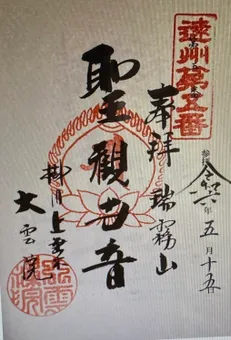 遠州第五番
奉拝
瑞霧山
参拝
令和六年五月十五
聖観世音
掛川上垂木
大雲院